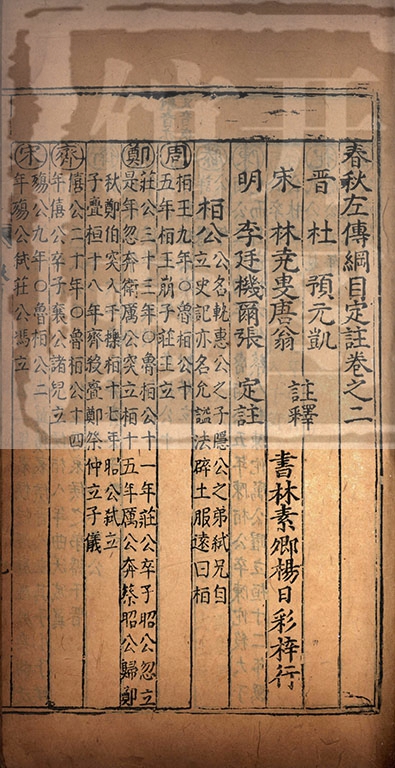 春秋左傳綱目定註卷之二
晉 杜 預元凱
宋 林堯叟唐翁 註釋
書林素卿楊日彩梓行
明 李廷機爾張 定註
桓公
公名軌惠公之子隱公之弟弒兄自
立史記亦名允謚法辟土服遠曰桓
周
桓王九年〇魯桓公十
五年桓王崩子莊王立
鄭
莊公三十三年〇魯桓公十一年莊公卒子昭公忽立
是年忽奔衛厲公突立桓十五年厲公奔蔡昭公歸鄭
秋鄭伯突入于櫟桓十七年昭公弒立
子亹桓十八年齊殺亹鄭祭仲立子儀
齊
僖公二十年〇魯桓公十四
年僖公卒子襄公諸兒立
宋
殤公九年〇魯桓公二
年殤公弒莊公馮立